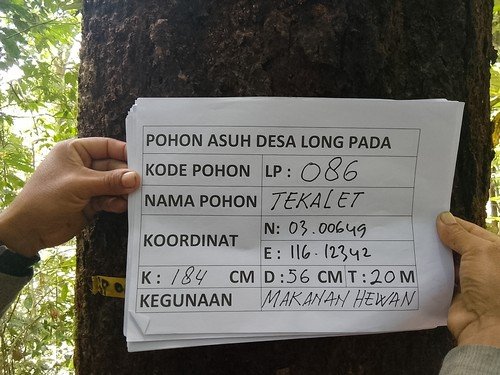 POHON ASUH DESA LONG PADA
KODE POHON LP : 086
NAMA POHON TEKALET
KOORDINAT N: 03.00649
E : 116.12342
K : 184 CM D : 56 CM T : 20 M
KEGUNAAN MAKANAN HEWAN